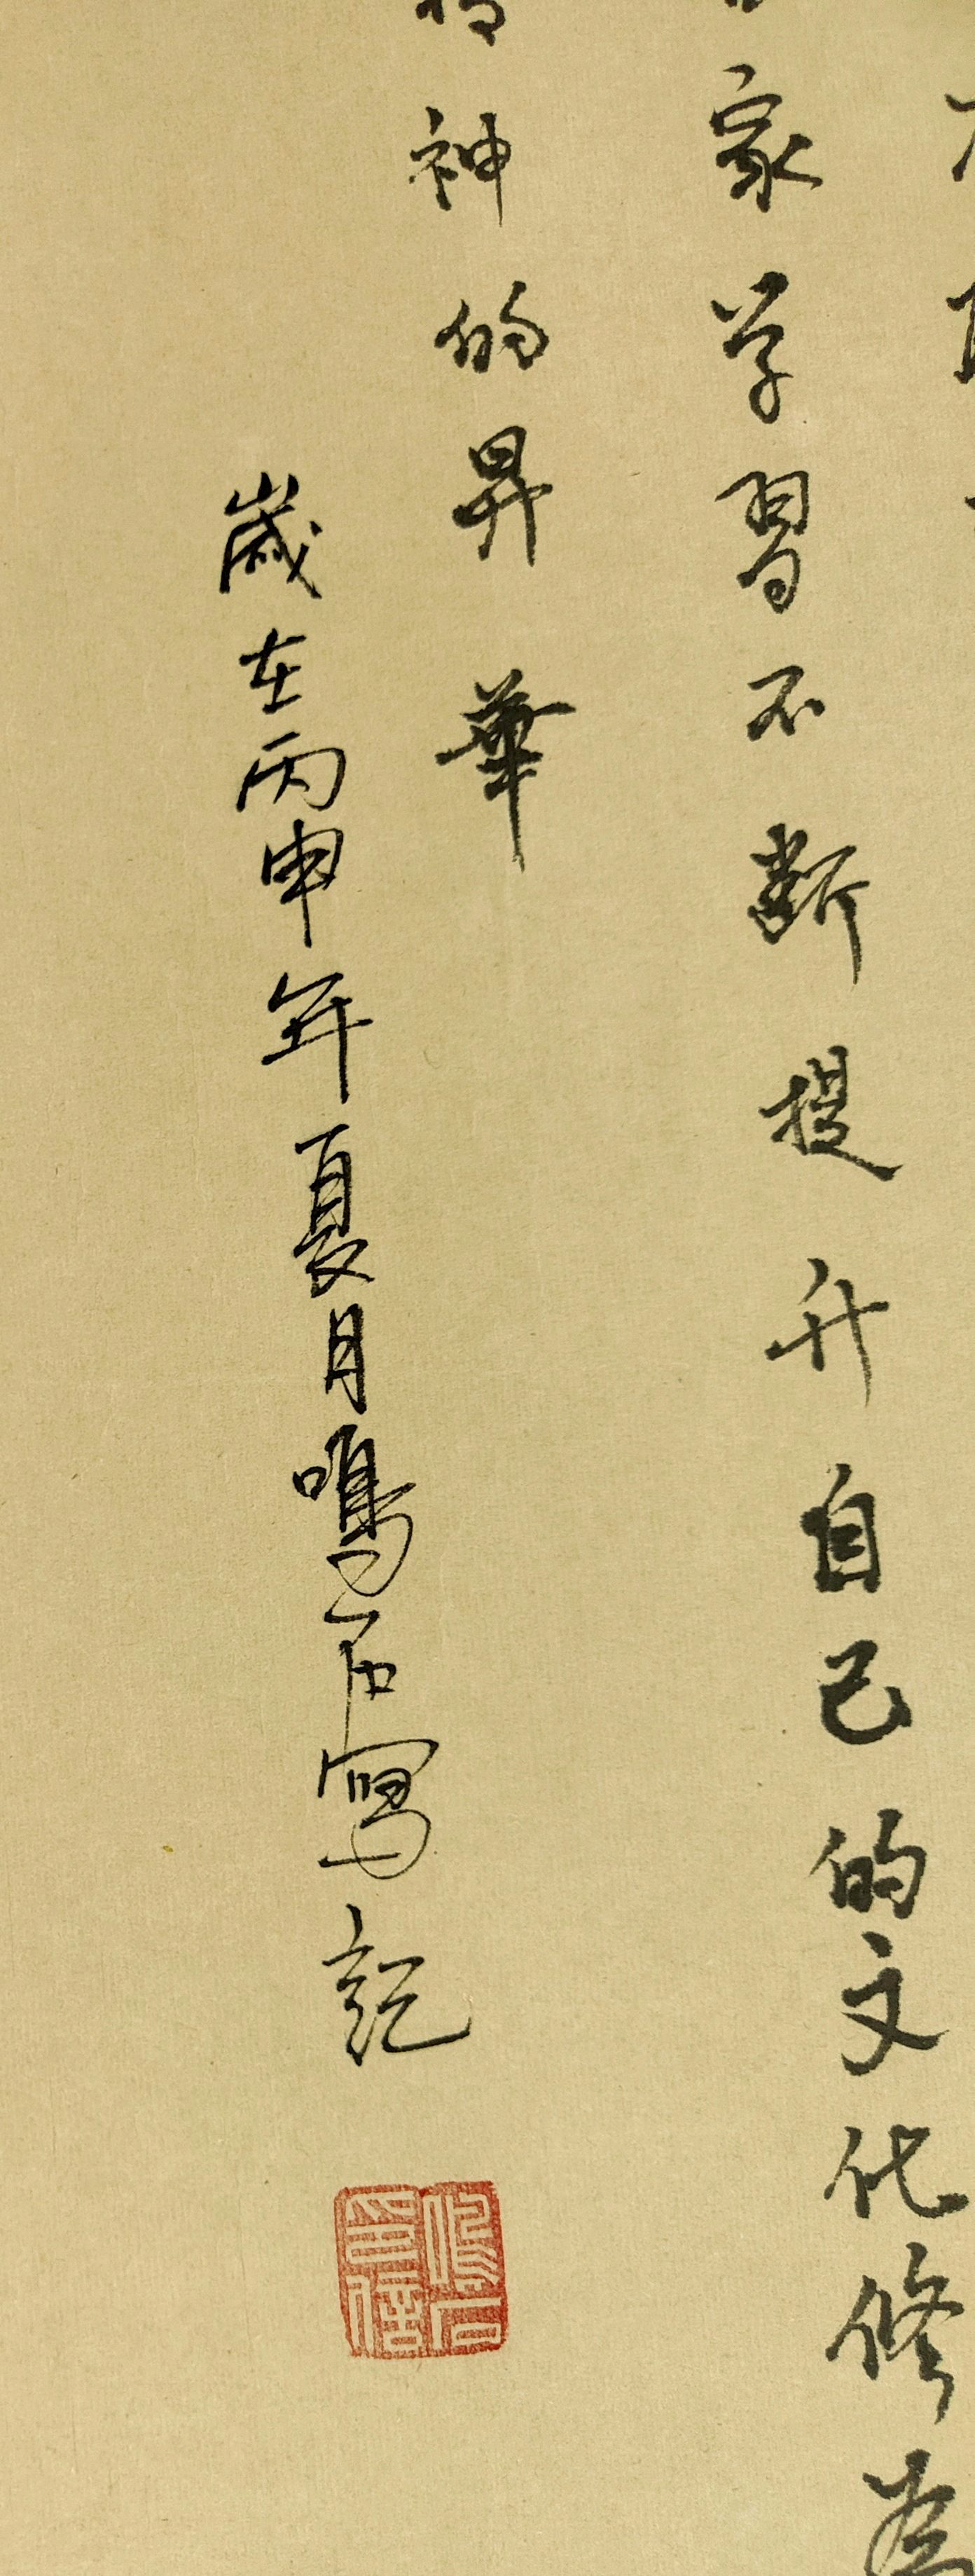 家学習不断提升自己的文化修
神的昇華
歲在丙申年夏月鳴石寫記